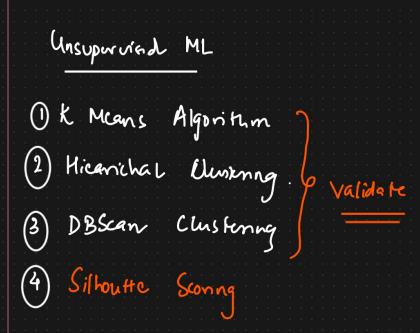 Unsupervised ML
① K Means Algorithm
② Hierarichal Clustering.
③ DBScan Clustering
Validate
④ Silhoutte Scoring